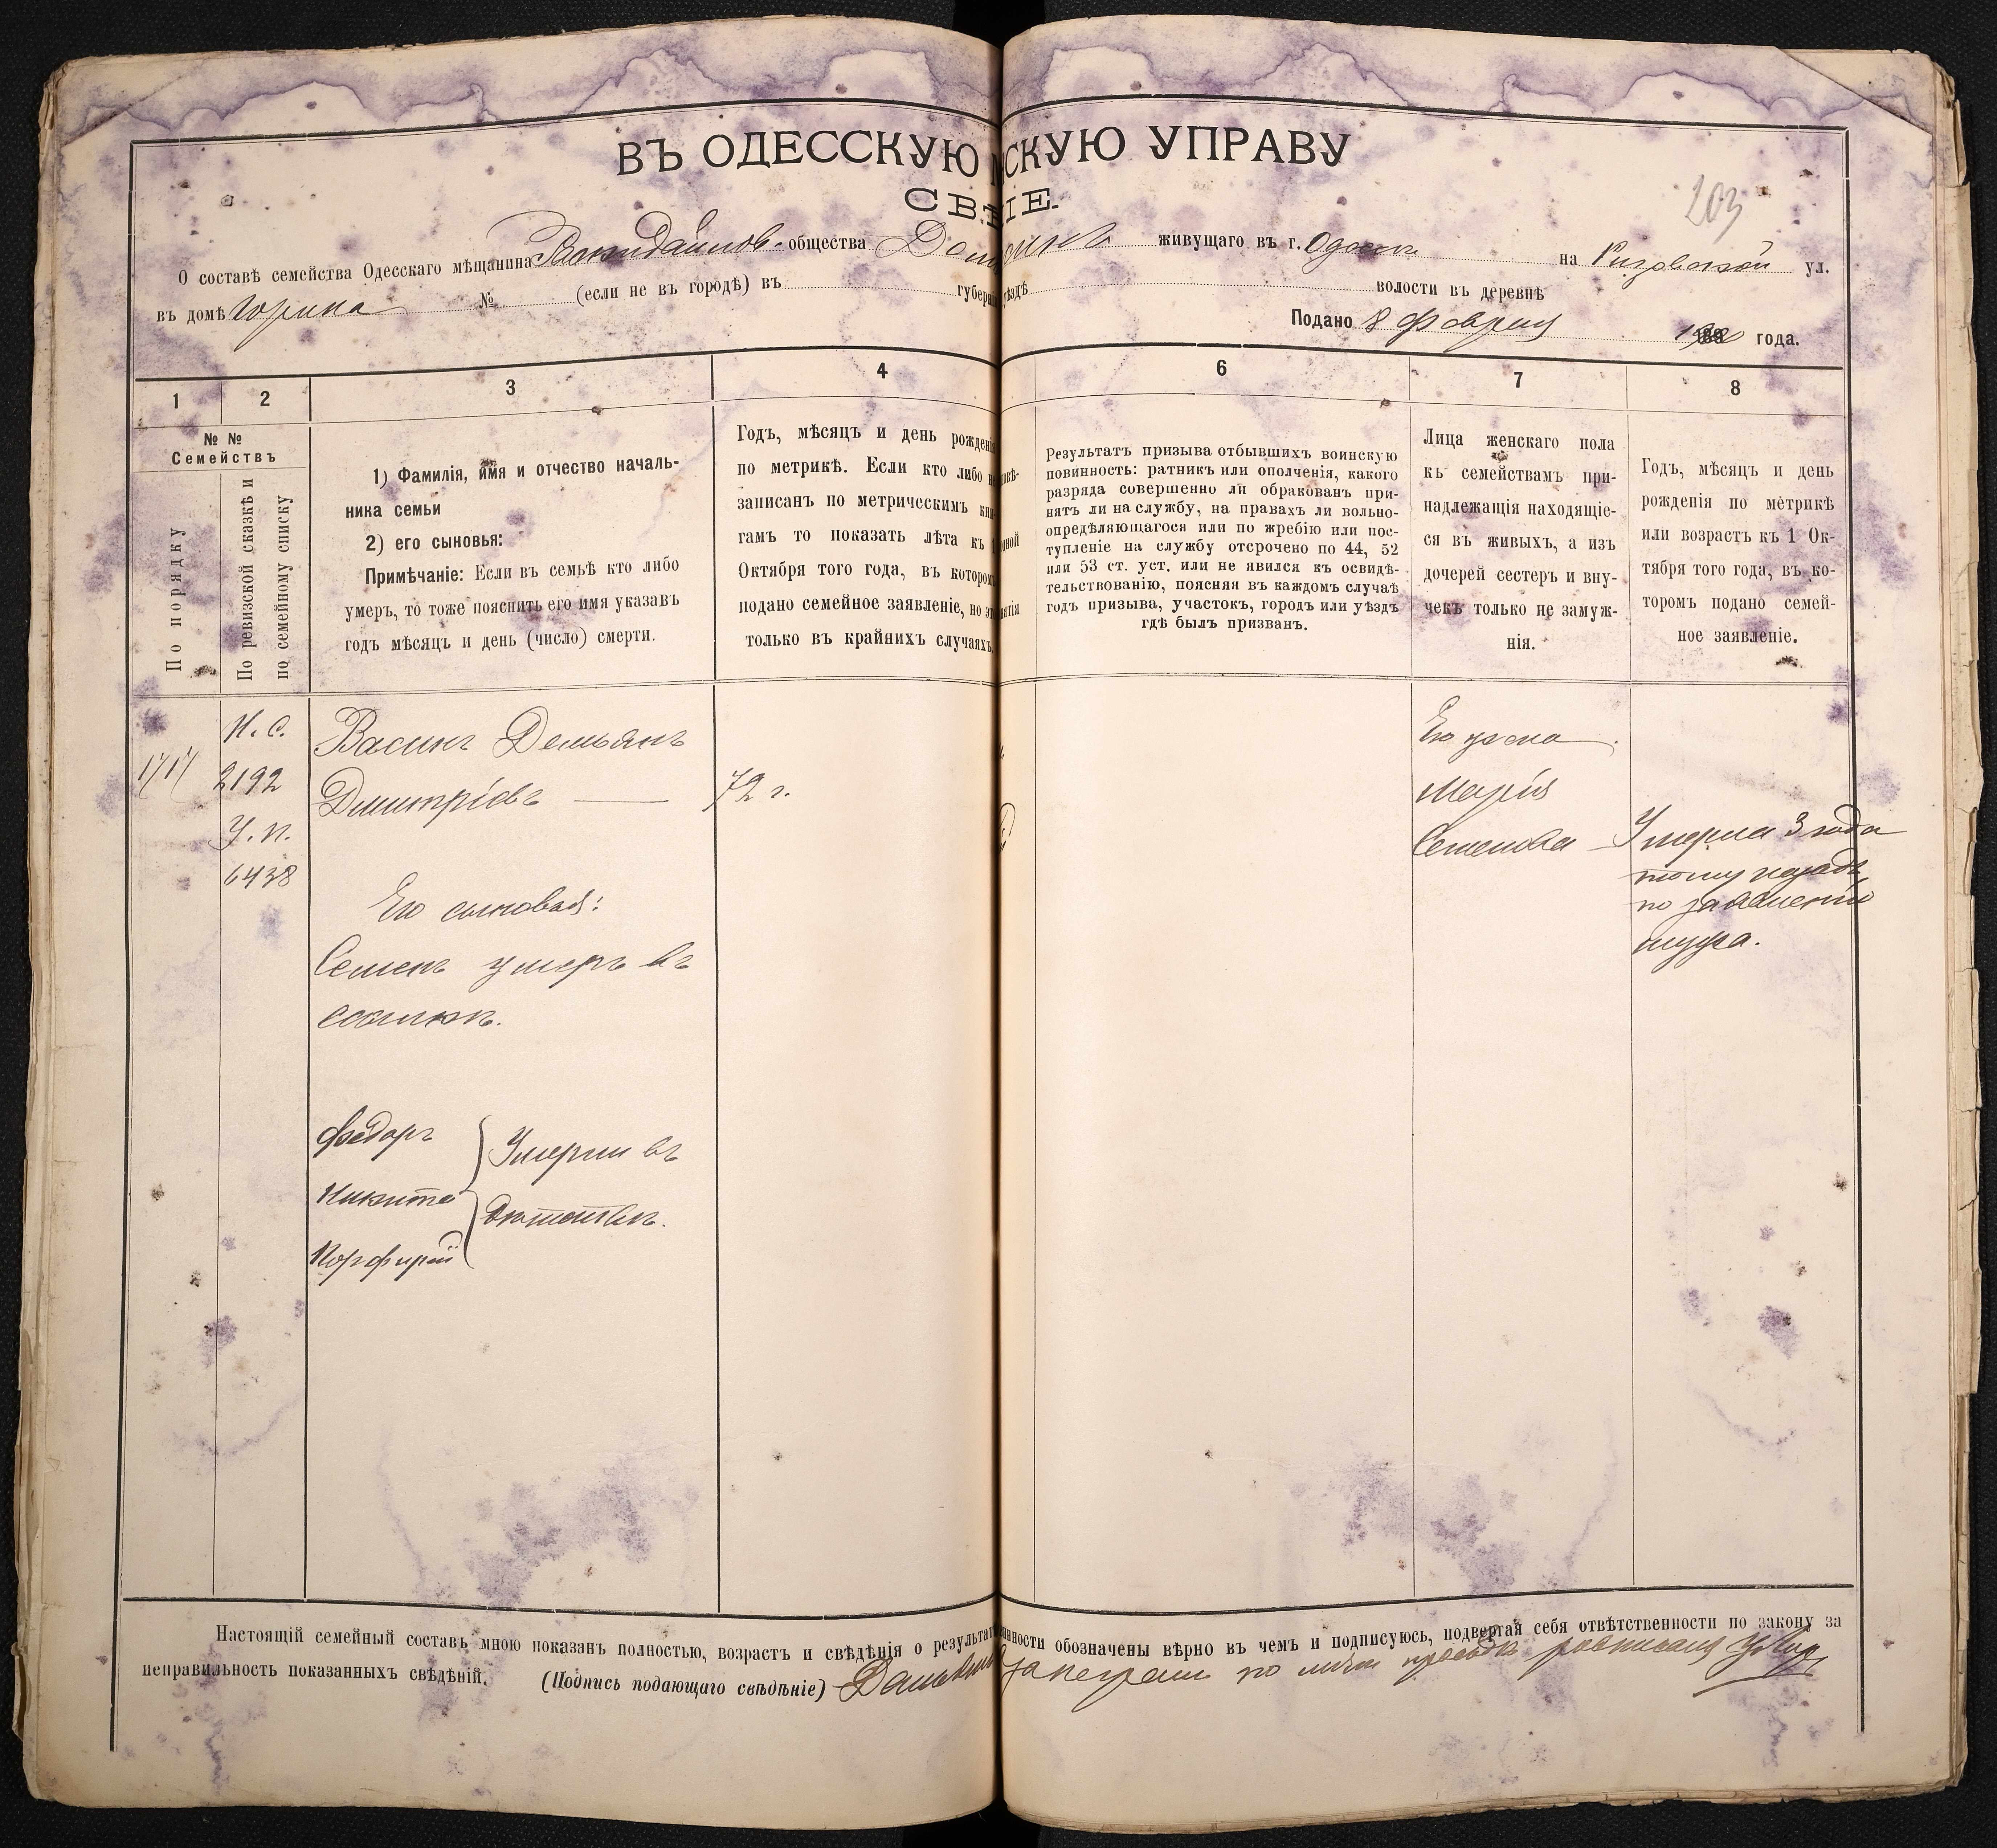 ВЪ ОДЕССКУЮ СКУЮ УПРАВУ
СВѢ ІЕ.
203
О составѣ семейства Одесскаго мѣщанина общества живущаго въ г. Одессѣ на Ризовской ул.
въ домѣ Горина № (если не въ городѣ) въ губерн ѣздѣ волости въ деревнѣ
Подано 8 Февраля года.
1 2 3 4 6 7 8
№ №
Семействъ
По порядку
По ревизской сказкѣ и
по семейному списку
1) Фамилія, имя и отчество началь-
ника семьи
2) его сыновья:
Примѣчаніе: Если въ семьѣ кто либо
умеръ, то тоже пояснить его имя указавъ
годъ мѣсяцъ и день (число) смерти.
Годъ, мѣсяцъ и день рожден
по метрикѣ. Если кто либо н
записанъ по метрическимъ кни
гамъ то показать лѣта къ 1
Октября того года, въ котором
подано семейное заявленіе, но эт
только въ крайнихъ случаяхъ.
Результатъ призыва отбывшихъ воинскую
повинность: ратникъ или ополченія, какого
разряда совершенно ли обракованъ при-
нятъ ли на службу, на правахъ ли вольно-
опредѣляющагося или по жребію или пос-
тупленіе на службу отсрочено по 44, 52
или 53 ст. уст. или не явился къ освидѣ-
тельствованію, поясняя въ каждомъ случаѣ
годъ призыва, участокъ, городъ или уѣздъ
гдѣ былъ призванъ.
Лица женскаго пола
къ семействамъ при-
надлежащія находящіе-
ся въ живыхъ, а изъ
дочерей сестеръ и вну-
чекъ только не замуж-
нія.
Годъ, мѣсяцъ и день
рожденія по метрикѣ
или возрастъ къ 1 Ок-
тября того года, въ ко-
торомъ подано семей-
ное заявленіе.
1717
Н. С.
2192
У. П.
6438
Васинъ Демьянъ
Дмитріевъ — 72 г.
Его сыновья:
Семенъ умеръ въ
ссылкѣ.
Федоръ
Никита
Порфирій
Умерли въ
дѣтствѣ.
Его жена
Марія
Семенова —
Умерла 3 года
тому назадъ
по заявленію
мужа.
Настоящій семейный составъ мною показанъ полностью, возрастъ и свѣдѣнія о результат инности обозначены вѣрно въ чемъ и подписуюсь, подвергая себя отвѣтственности по закону за
неправильность показанныхъ свѣдѣній. (Подпись подающаго свѣдѣніе)